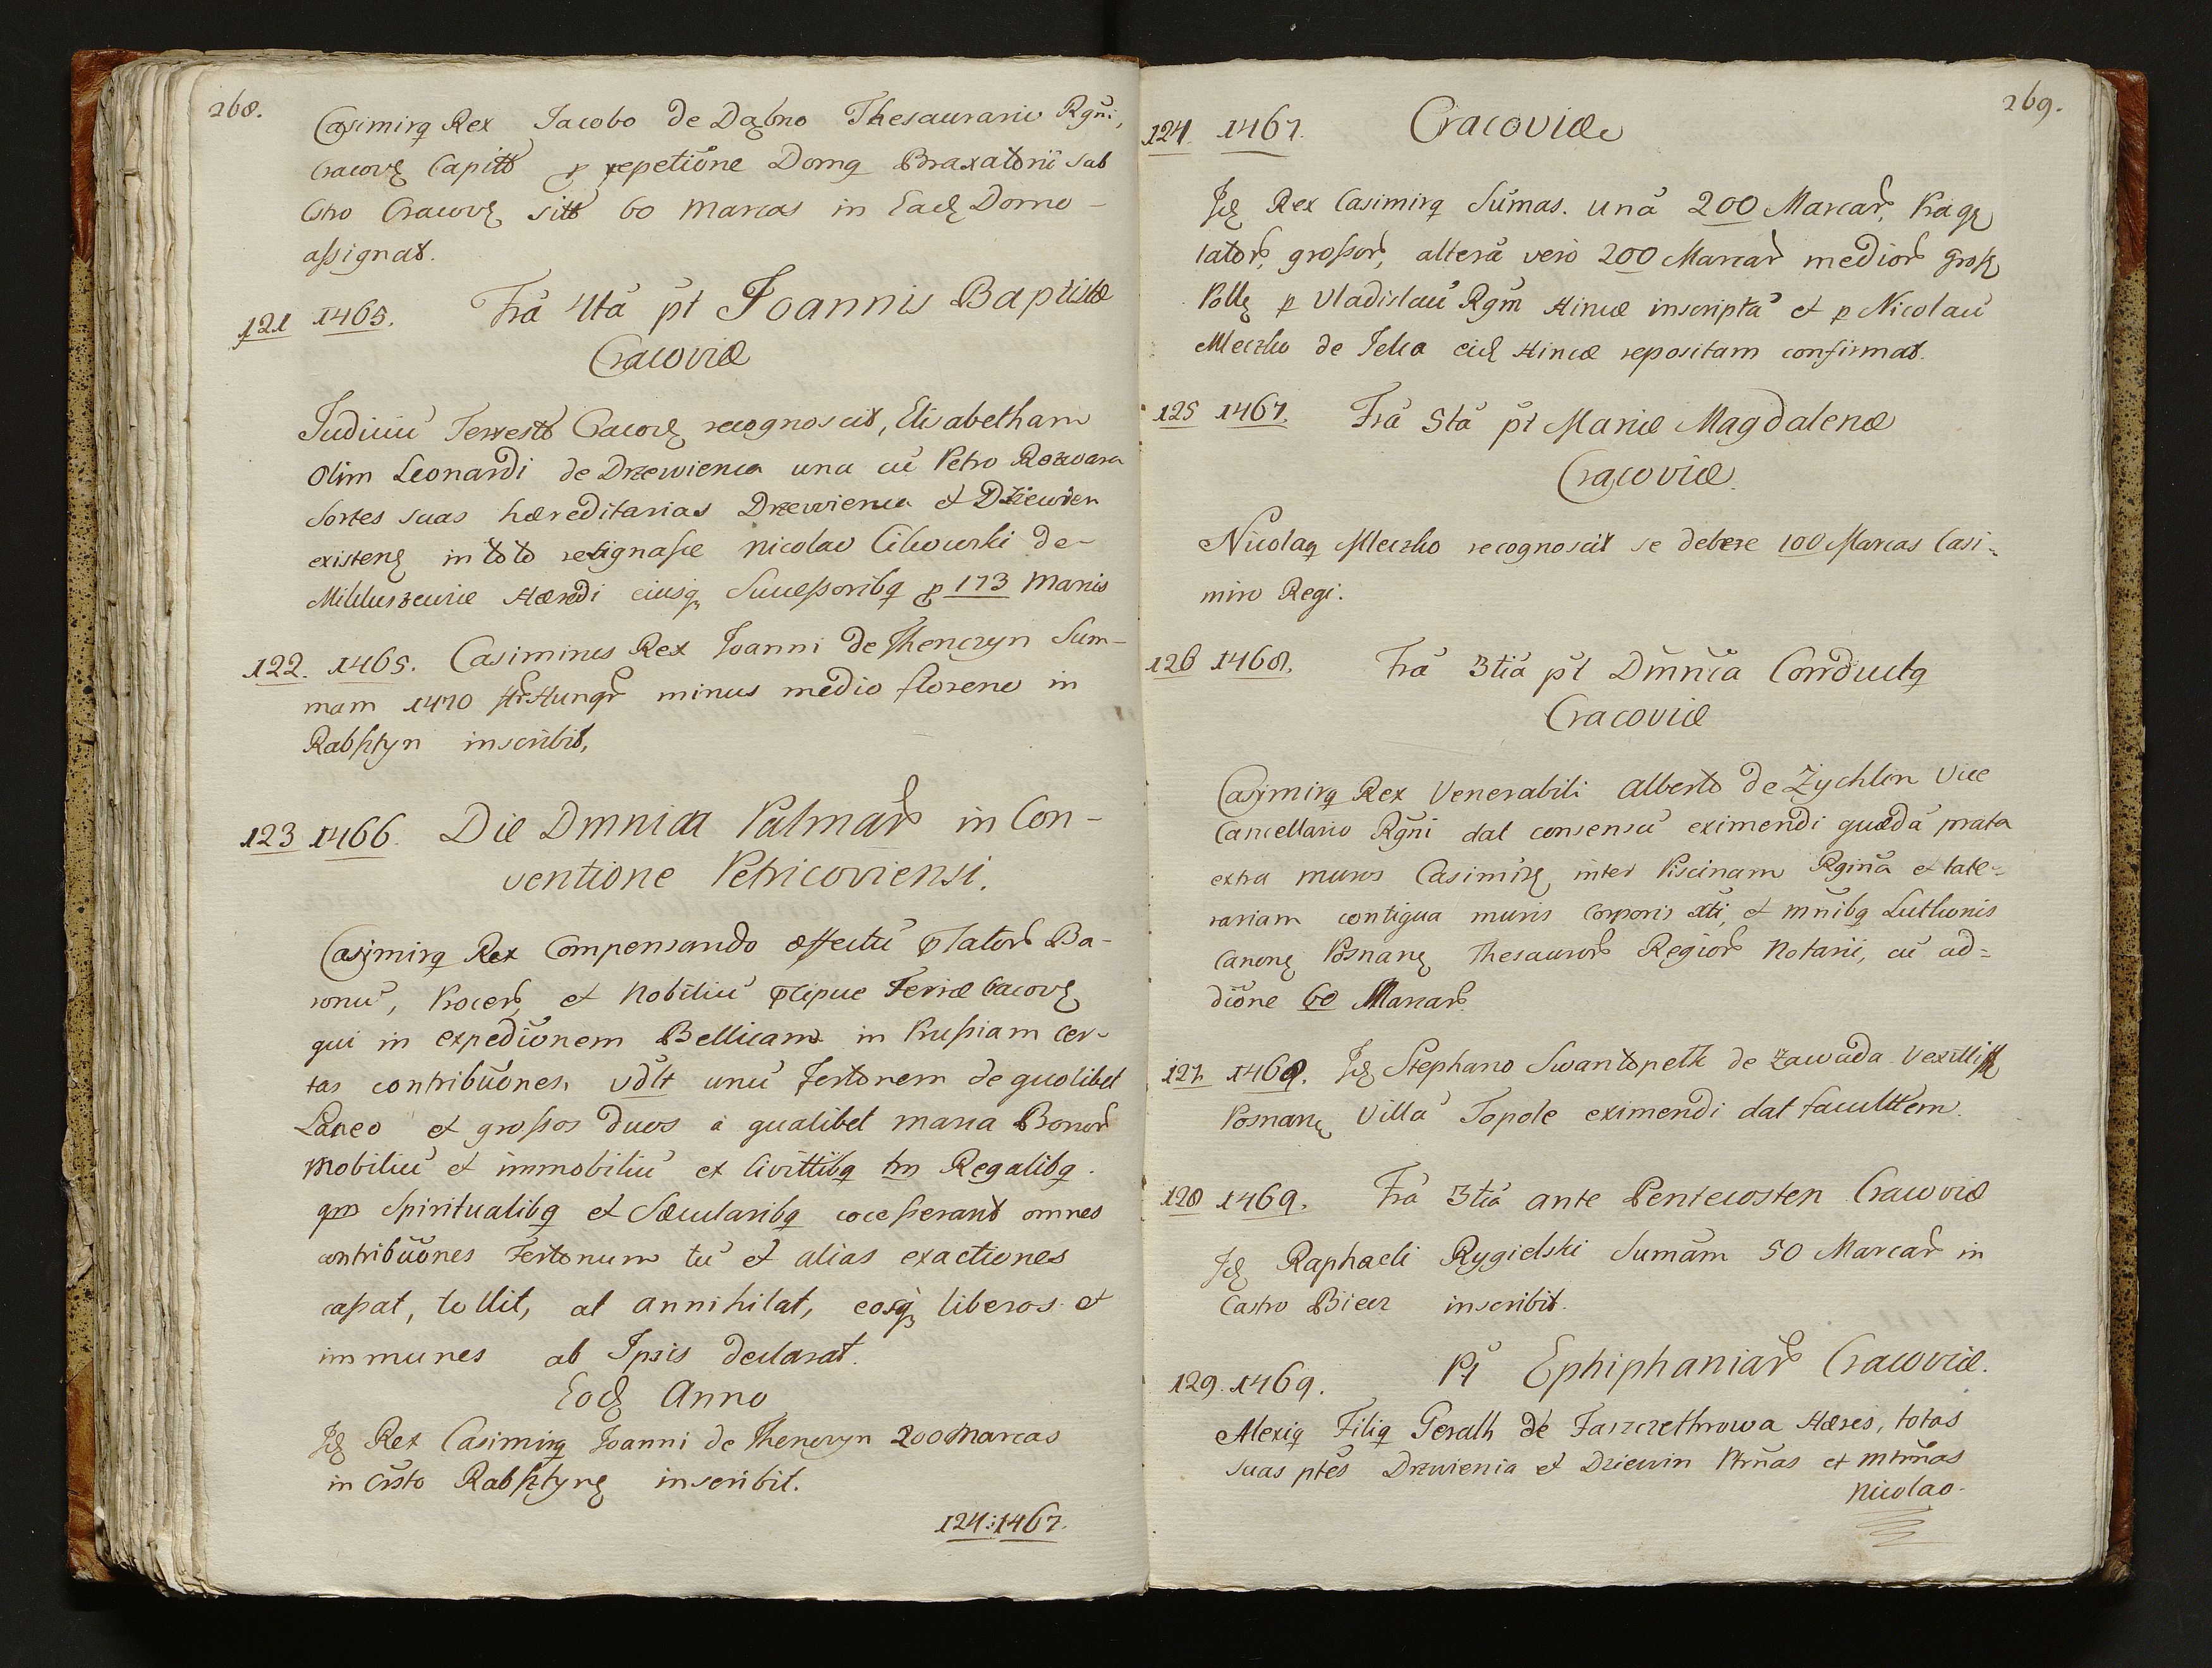 268.
Casimirq Rex Jacobo de Dabno Thesaurario Rgñi,
Cracovę Capitt p repetione Domq Braxatorii sub
Cstro Cracovę sitt 60 Marcas in Eadę Domo -
assignat.
121 1465. Frâ 4tâ pt Joannis Baptistæ
Cracoviæ
Judiciū Terrestr Cracovę recognoscit, Elisabetham
Olim Leonardi de Drzewienca una cū Petro Rozwara
Sortes suas hæreditarias Drzewienca et Dziewien
existenę in toto resignasse Nicolao Cikowski de -
Mikluszewice Hæredi eiusq Successoribq p 173 Marcis
122. 1465. Casimirus Rex Joanni de Thenczyn Sum-
mam 1470 flr Hungr minus medio floreno in
Rabsztyn inscribit,
123 1466. Die Dmnica Palmar in Con-
ventione Petricoviensi.
Casimirq Rex Compensando effectū plator Ba-
ronū, Procer, et Nobiliū pcipue Terræ Cracovę
qui in expeditionem Bellicam in Prussiam cer-
tas contribūones, vdlt unū fertonem de quolibet
Laneo et grossos duos à qualibet marca Bonor
Mobiliū et immobiliū ex Civittibq tm Regalibq.
qm Spiritualibq et Sæcularibq cocesserant omnes
contribūones Fertonum tū et alias exactiones
cassat, tollit, at annihilat, eosq liberos et
immunes ab Ipsis declarat.
Eodę Anno
Idę Rex Casimirq Joanni de Thenczyn 200 Marcas
in Csto Rabsztynę inscribit.
124: 1467.
269.
124. 1467. Cracoviæ
Idę Rex Casimirq Sūmas. unâ 200 Marcar, Pragę
lator, grossor, alterâ vero 200 Marcar medior grosę
Pollę p Vladislaū Rgm Hincæ inscriptâ et p Nicolaū
Meczko de Jelca eidę Hincæ repositam confirmat.
125 1467. Frâ 5tâ pt Mariæ Magdalenæ
Cracoviæ.
Nicolaq Meczko recognoscit se debere 100 Marcas Casi-
miro Regi.
126 1468. Frâ 3tiâ pt Dmnîca Conductq
Cracoviæ
Casimirq Rex Venerabili Alberto de Zychlin Vice
Cancellario Rgñi dat consensū eximendi quædâ prata
extra muros Casimirę inter Piscinam Rginâ et late-
rariam contigua muris Corporis xti, et mnibq Luthonis
Canonę Posnanę Thesauror Regior Notarii, cū ad-
dīone 60 Marcar.
127. 1468. Idę Stephano Swantopelk de Zawada Vexillifę
Posnanę Villâ Topole eximendi dat facultt̃em.
128 1469. Frâ 3tiâ ante Pentecosten Cracoviæ
Idę Raphaeli Rygielski Sumâm 50 Marcar in
Castro Biecz inscribit.
129. 1469. Pt Ephiphaniar Cracoviæ.
Alexiq Filiq Geralth de Jarzczethrowa Hæres, totas
suas ptes Drzwienia et Dziewin Ptrñas et mtrñas
Nicolao.